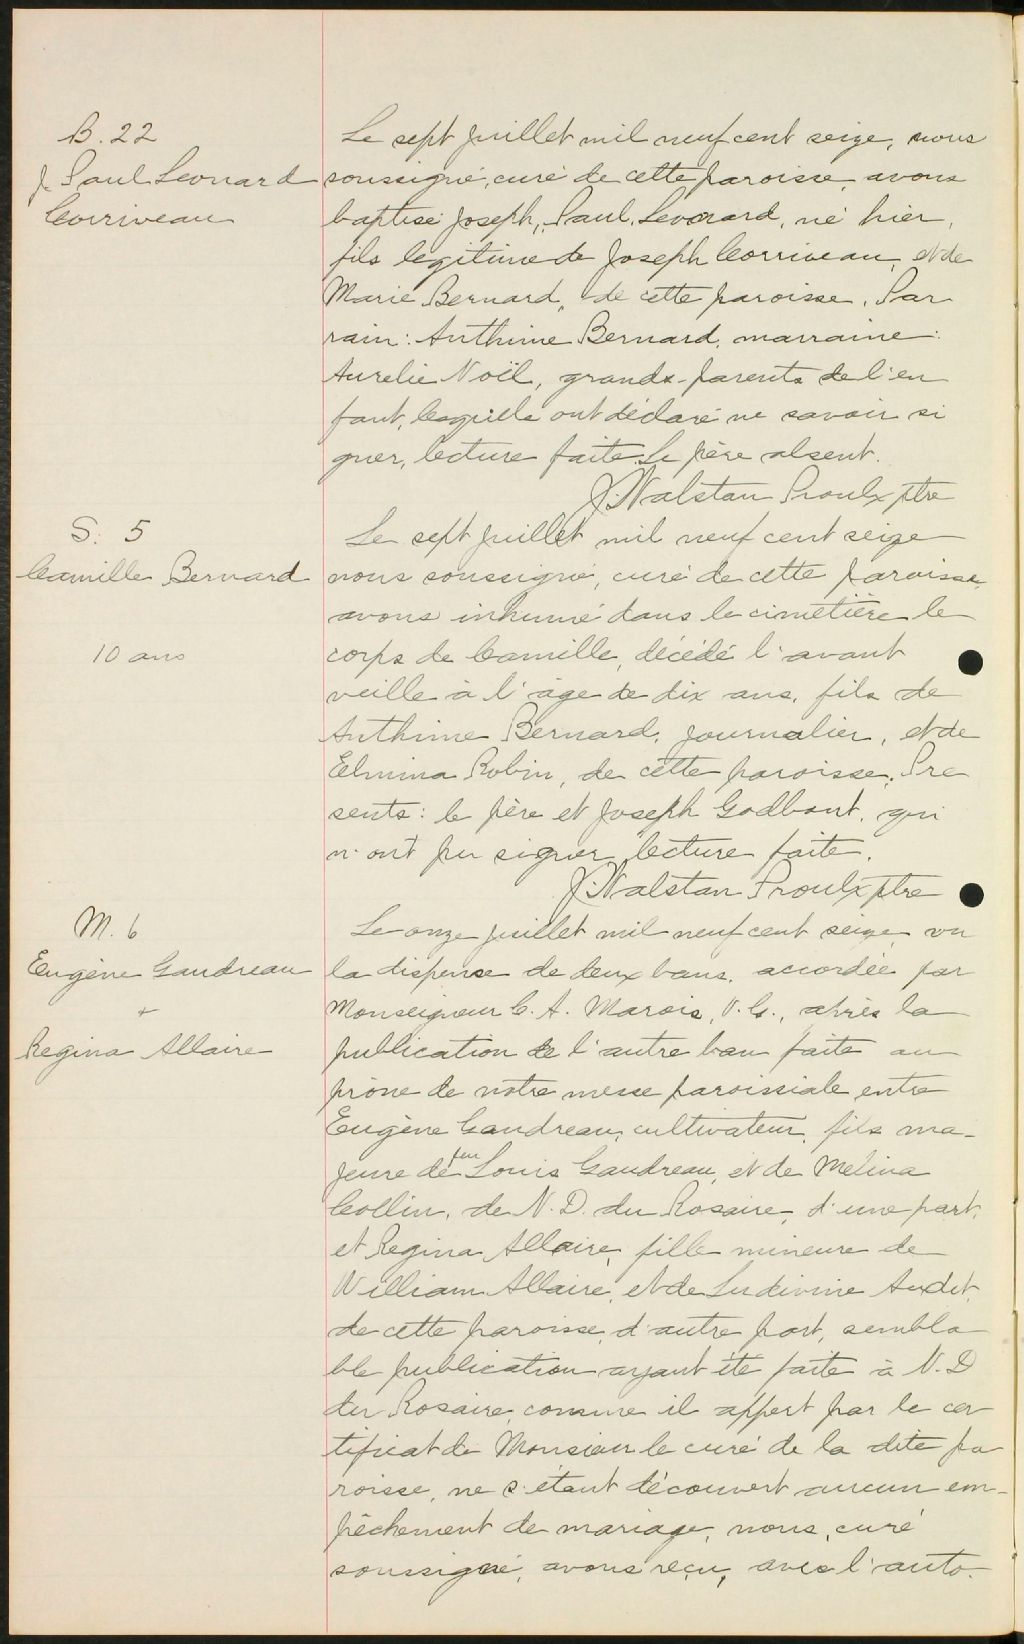 B. 22
J. Paul Leonard
Corriveau
Le sept juillet mil neuf cent seize, nous
soussigné, curé de cette paroisse, avons
baptisé Joseph, Paul, Leonard, né hier,
fils legitime de Joseph Corriveau, et de
Marie Bernard, de cette paroisse. Par
rain: Anthime Bernard, marraine:
Aurelie Noël, grands-parents de l'en
fant, lesquels ont déclaré ne savoir si
gner, lecture faite. Le père absent.
J. Walstan Proulx ptre
S. 5
Camille Bernard
10 ans
Le sept juillet mil neuf cent seize
nous soussigné, curé de cette paroisse,
avons inhumé dans le cimetière le
corps de Camille, décédé l'avant
veille à l'âge de dix ans, fils de
Anthime Bernard, journalier, et de
Elmina Robin, de cette paroisse. Pre
sents: le père et Joseph Godbout, qui
n'ont pu signer, lecture faite.
J. Walstan Proulx ptre
M. 6
Eugène Gaudreau
+
Regina Allaire
Le onze juillet mil neuf cent seize, vu
la dispense de deux bans, accordée par
Monseigneur C. A. Marois, V. G., après la
publication de l'autre ban faite au
prône de notre messe paroissiale entre
Eugène Gaudreau, cultivateur, fils ma-
jeure de feu Louis Gaudreau, et de Melina
Collin, de N. D. du Rosaire, d'une part,
et Regina Allaire, fille mineure de
William Allaire, et de Ludivine Audet,
de cette paroisse, d'autre part, sembla
ble publication ayant été faite à N. D
du Rosaire, comme il appert par le cer
tificat de Monsieur le curé de la dite pa
roisse, ne s'étant découvert aucun em-
pêchement de mariage, nous, curé
soussigné, avons reçu, avec l'auto-